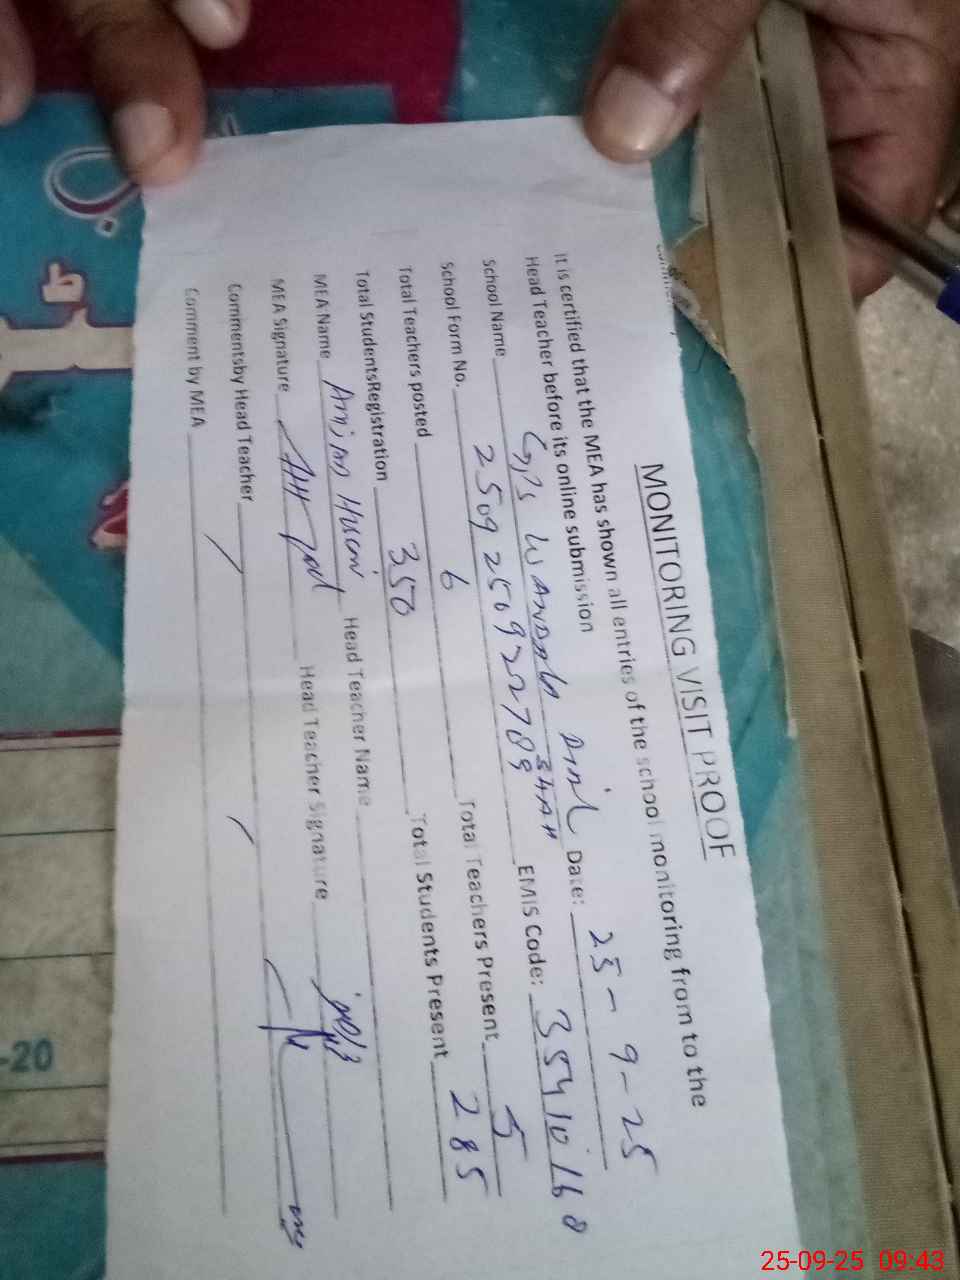 MONITORING VISIT PROOF
It is certified that the MEA has shown all entries of the school monitoring from to the
Head Teacher before its online submission
School Name GPS WANDALA DIAL SHAH Date: 25-9-25
School Form No. 2509250922789 EMIS Code: 35410168
Total Teachers posted 6 Total Teachers Present 5
Total StudentsRegistration 350 Total Students Present 285
MEA Name Head Teacher Name
MEA Signature Head Teacher Signature
Commentsby Head Teacher
Comment by MEA
-20
25-09-25 09:43